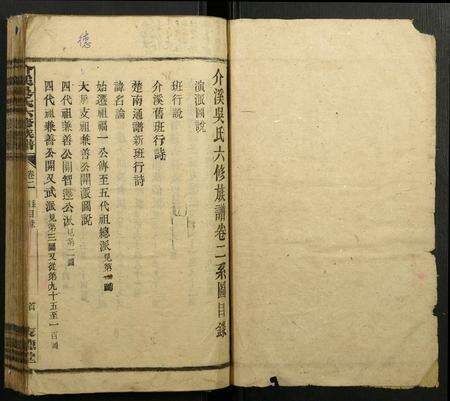 介溪吳氏六修族譜卷二系圖目錄
演派圖說
班行說
介溪舊班行詩
楚南通譜新班行詩
諱名論
始遷祖福一公傳至五代祖總派見第一圖
大房支祖兼善公開派圖說
四代祖兼善公開智遷公派見第二圖
四代祖兼善公開又武派見第三圖又從第九十五至一百圖
德
介溪吳氏六修族譜
卷二
目錄